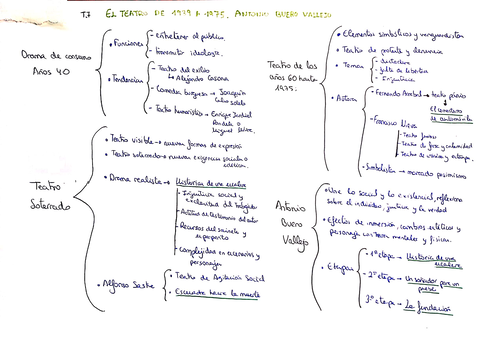 T.7 EL TEATRO DE 1939 A 1975. ANTONIO BUERO VALLEJO
Drama de consumo
Años 40
• Funciones
- entretener al público.
- transmitir ideología.
• Tendencias
- Teatro del exilio
↳ Alejandro Casona
- Comedia burguesa → Joaquín
Calvo Sotelo
- Teatro humorístico → Enrique Jardiel
Poncela o
Miguel Mihura.
Teatro
Soterrado
• Teatro visible → nuevas formas de expresión
• Teatro soterrado → nuevas exigencias sociales o
• Drama realista → Historia de una escalera
- Injusticia social y
esclavitud del
- Actitud de testimonio del autor
- Recursos del sainete y
esperpento
- Complejidad en escenarios y
personajes
• Alfonso Sastre
• Teatro de Agitación Social
• Escuadra hacia la muerte
Teatro de los
años 60 hasta
1975:
• Elementos simbólicos y vanguardistas
• Teatro de protesta y denuncia
• Temas
- dictadura
- falta de libertad
- injusticia
• Autores
• Fernando Arrabal → teatro pánico
El cementerio
de automóviles
• Francisco Nieva
- Teatro furioso
- Teatro de farsa y calamidad
- Teatro de crónica y estampa.
• Simbolista → marcado pesimismo
Antonio
Buero
Vallejo
• Une lo social y lo existencial, reflexiona
sobre el individuo, justicia y la verdad
• Efectos de inmersión, cambios estéticos y
personajes con taras mentales y físicas.
• Etapas
1ª etapa → Historia de una
escalera
2ª etapa → Un soñador para un
pueblo
3ª etapa → La fundación